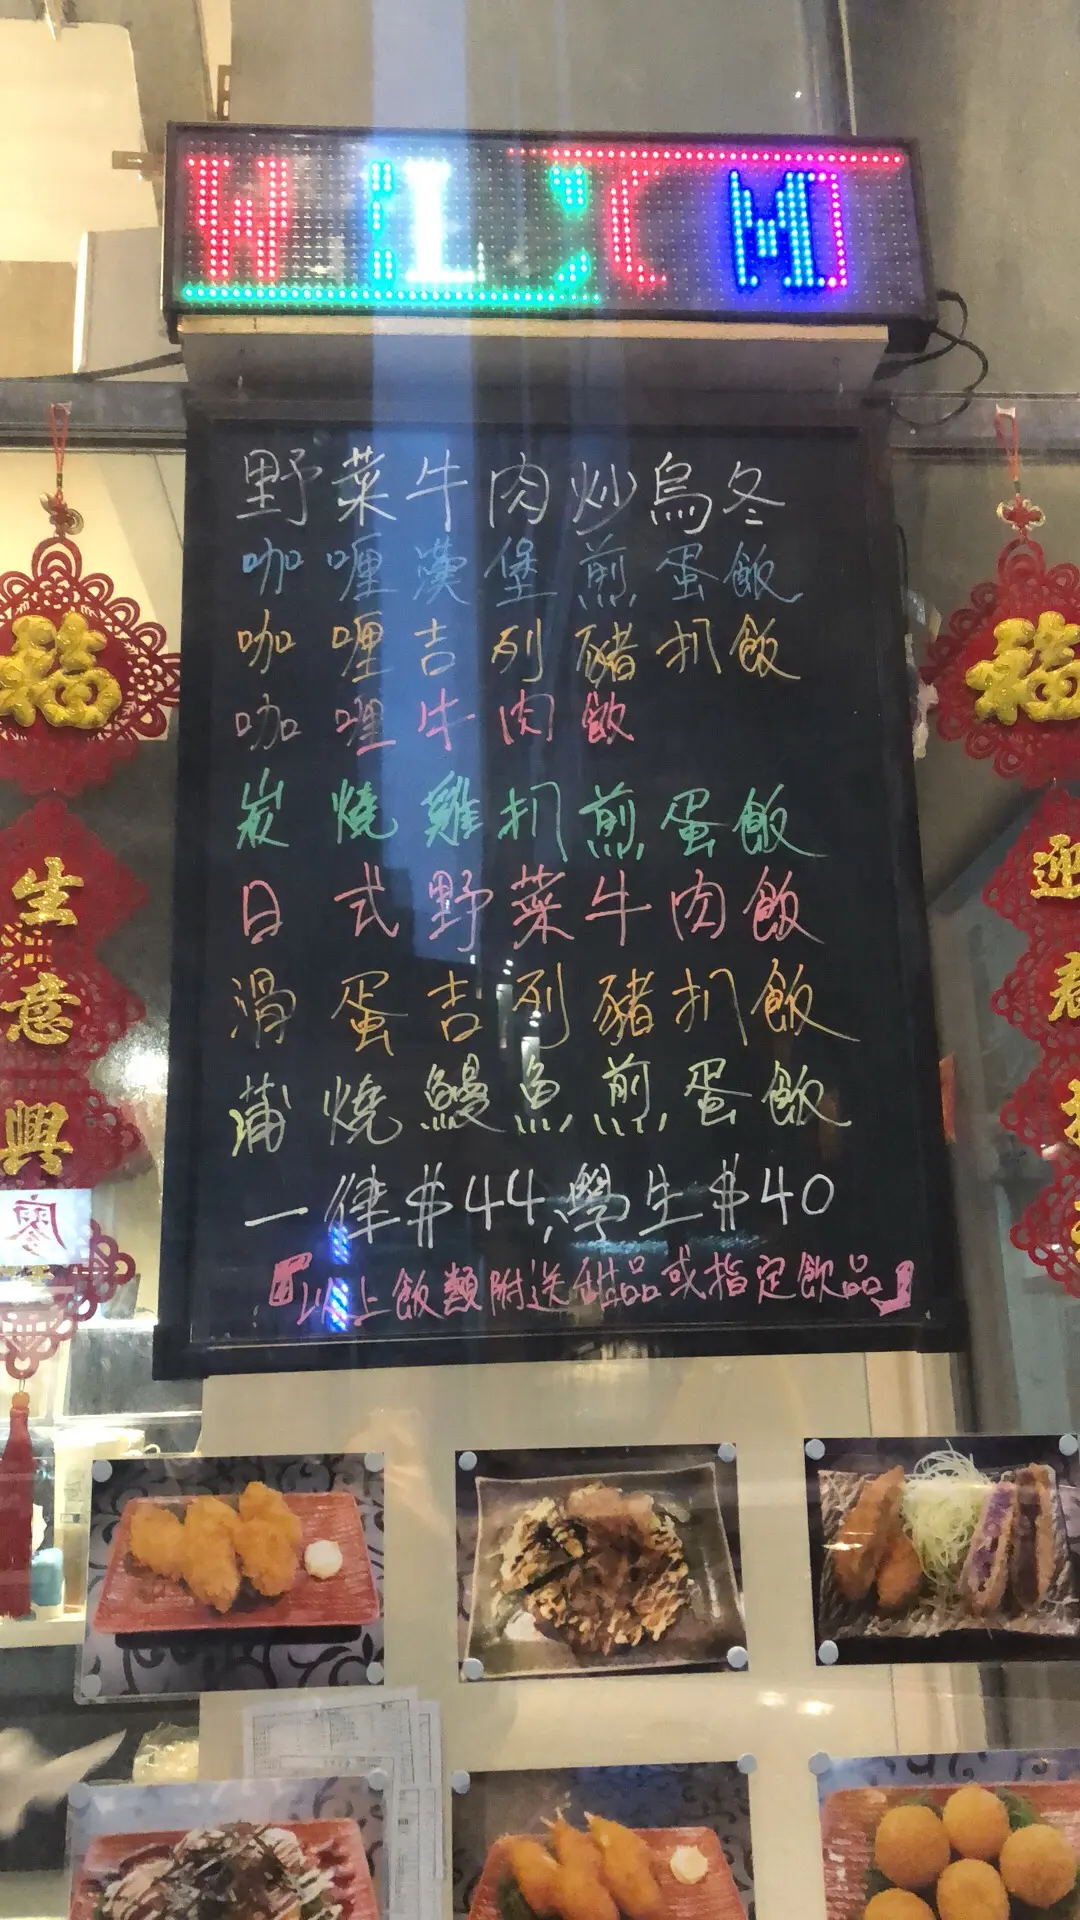 W L C M
野菜牛肉炒烏冬
咖喱漢堡煎蛋飯
咖喱吉列豬扒飯
咖哩牛肉飯
炭燒雞扒煎蛋飯
日式野菜牛肉飯
滑蛋吉列豬扒飯
蒲燒鰻魚煎蛋飯
一律$44,學生$40
『以上飯類附送甜品或指定飲品』
福
生
意
興
福
迎
春